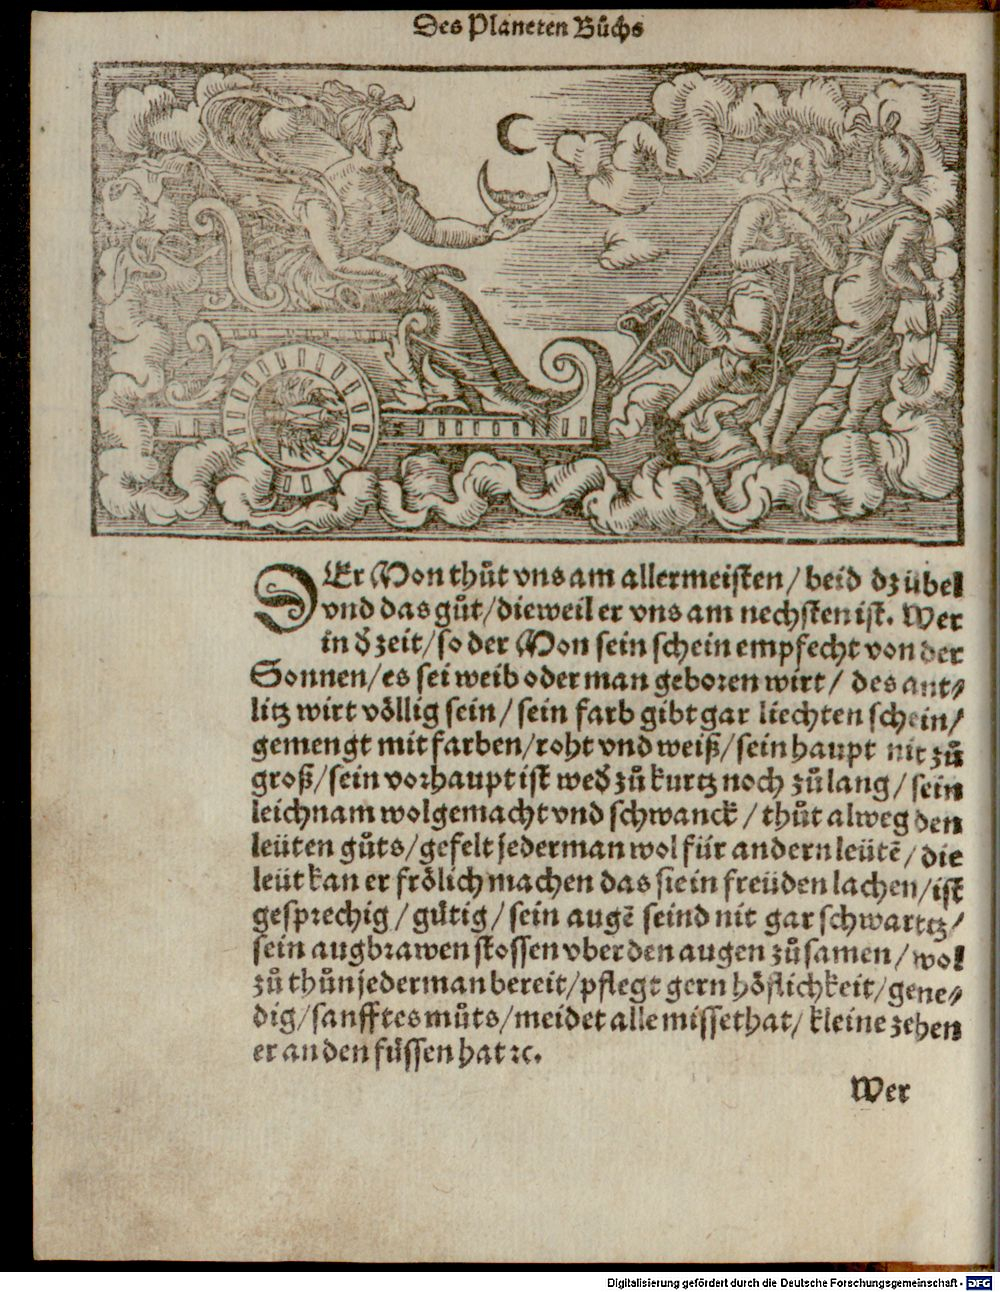 Des Planeten Bůchs
DEr Mon thůt vns am allermeisten / beid dz übel
vnd das gůt / dieweil er vns am nechsten ist. Wer
in d̕ zeit / so der Mon sein schein empfecht von der
Sonnen / es sei weib oder man geboren wirt / des ant⸗
litz wirt völlig sein / sein farb gibt gar liechten schein /
gemengt mit farben / roht vnd weiß / sein haupt nit zů
groß / sein vorhaupt ist wed̕ zů kurtz noch zů lang / sein
leichnam wolgemacht vnd schwanck / thůt alweg den
leüten gůts / gefelt jederman wol für andern leütē / die
leüt kan er frölich machen das sie in freüden lachen / ist
gesprechig / gütig / sein augē seind nit gar schwartz /
sein augbrawen stossen vber den augen zůsamen / wol
zů thůn jederman bereit / pflegt gern höflichkeit / gene⸗
dig / sanfftes můts / meidet alle missethat / kleine zehen
er an den füssen hat ꝛc.
Wer
Digitalisierung gefördert durch die Deutsche Forschungsgemeinschaft - DFG